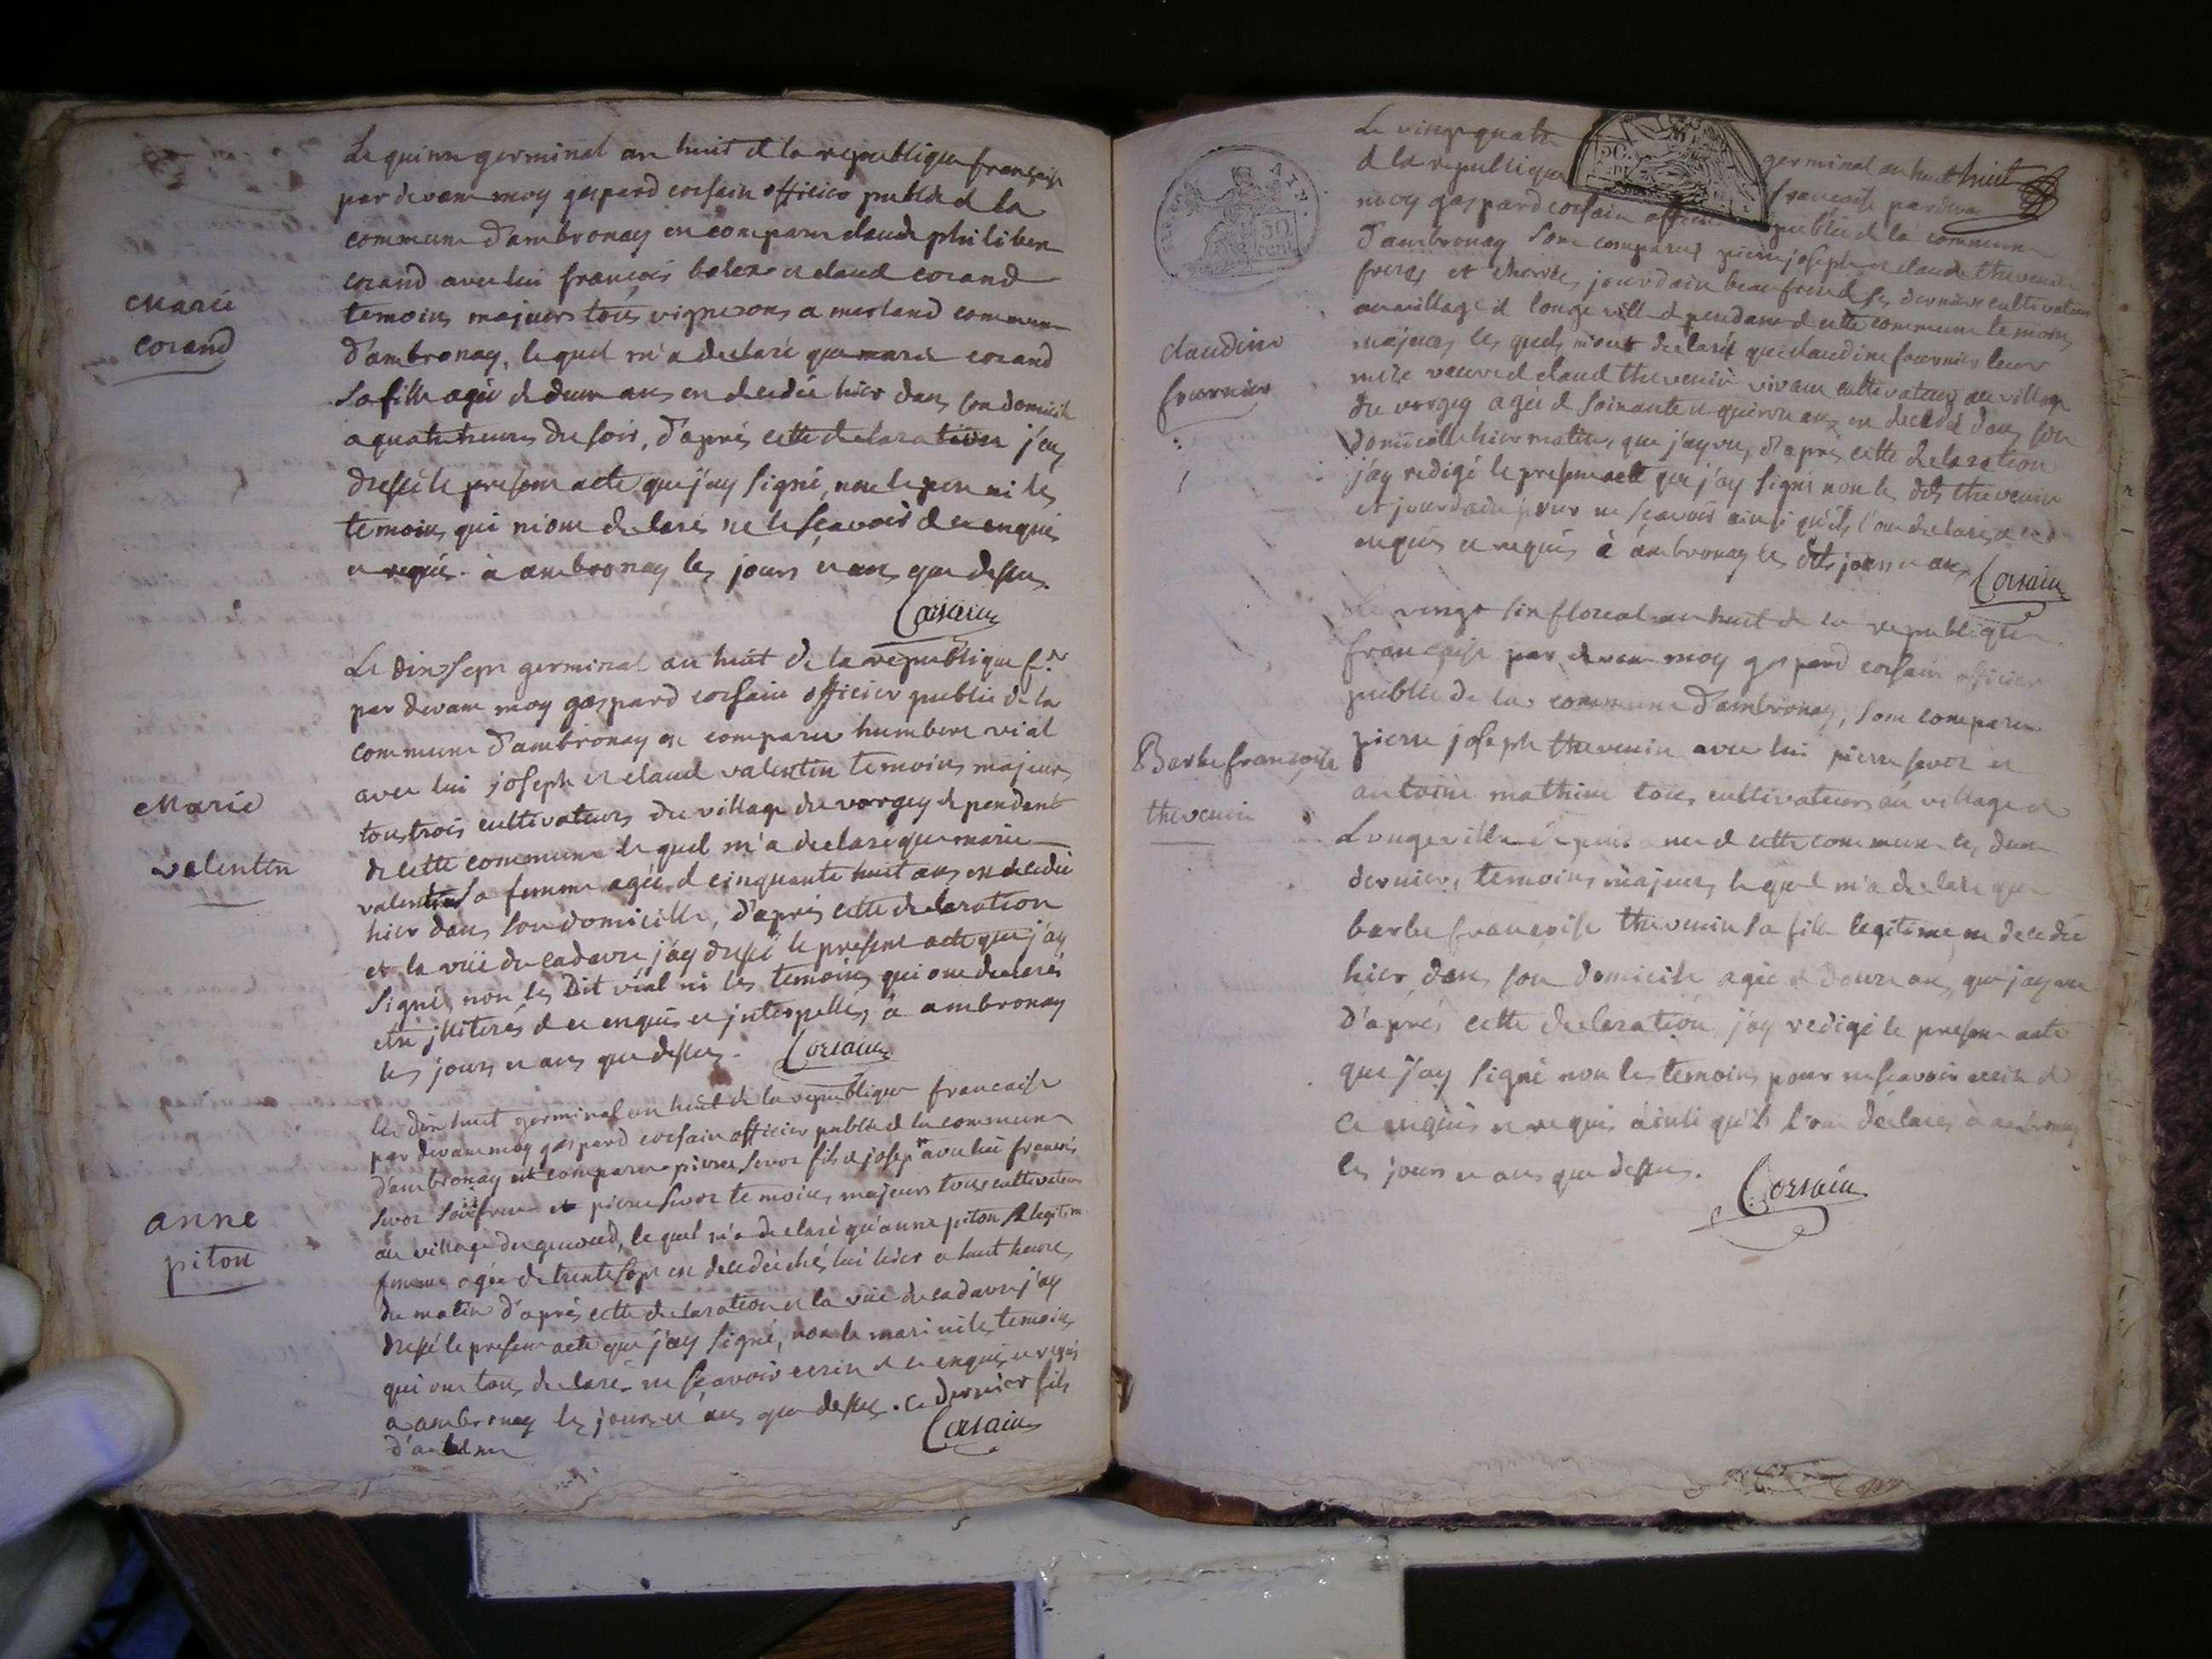 Marie
corand
Le quinze germinal an huit de la republique française
par devant moy gaspard corsain officier public de la
commune d'ambronay est comparu claude philibert
corand avec lui françois et claud corand
temoins majeurs tous vignerons a merland commune
d'ambronay, lequel m'a declaré que marie corand
sa fille agée de deux ans est decedée hier dans son domicile
a quatre heures du soir, d'aprés cette declaration j'ay
dressé le present acte que j'ay signé, non le pere ni les
temoins qui m'ont declaré ne le sçavoir de ce enquis
et requis. à ambronay les jours et ans que dessus.
Corsain
Marie
valentin
Le dix sept germinal an huit de la republique f.se
par devant moy gaspard corsain officier public de la
commune d'ambronay est comparu humbert vial
avec lui joseph et claud valentin temoins majeurs
tous trois cultivateurs du village du vorgey dependant
de cette commune lequel m'a declaré que marie
valentin sa femme agée de cinquante huit ans est decedée
hier dans son domicille, d'aprés cette declaration
et la vüe du cadavre j'ay dressé le present acte que j'ay
signé, non les Dit vial ni les temoins qui ont declarés
etre illiterés de ce enquis et interpellés, à ambronay
les jours et ans que dessus. Corsain
anne
piton
Le dix huit germinal an huit de la republique francaise
par devant moy gaspard corsain officier public de la commune
d'ambronay est comparu pierre sevoz fils de joseph avec lui francois
sevoz son frere et pierre sevoz temoins, majeurs tous cultivateurs
au village du genoud, lequel m'a declaré qu'anne piton sa legitime
femme agée de trente sept est decedée chés lui hier a huit heures
du matin d'aprés cette declaration et la vüe du cadavre j'ay
dressé le present acte que j'ay signé, non le mari ni les temoins
qui ont tous declaré ne sçavoir ecrire de ce enquis et requis
a ambronay les jours et ans que dessus. ce dernier fils
d'
Corsain
AIN.
50
cent
Le vingt quatre germinal an huit huit
de la republique francaise par devant
moy gaspard corsain officier public de la commune
d'ambronay sont comparus pierre joseph et claude thevenin
freres et jourdain beaufrere de ces derniers cultivateurs
au village de longeville dependant de cette commune temoins
majeurs les quels m'ont declaré que claudine fournier leur
mere veuve de claud thevenin vivant cultivateur au village
du vorgey agée de soixante et quinze ans est decedé dans son
domicille hier matin, que j'ay vu, d'aprés cette declaration
j'ay redigé le present acte que j'ay signé non les dits thevenin
et jourdain pour ne sçavoir ainsi qu'ils l'ont declaré de ce
enquis et requis à ambronay les dits jours et ans
Corsain
claudine
fournier
Le vingt six floreal an huit de la republique
francaise par devant moy gaspard corsain officier
public de la commune d'ambronay, sont comparu
pierre joseph thevenin avec lui pierre sevoz et
antoine mathieu tous cultivateurs au village de
Longeville dependance de cette commune les deux
derniers, temoins majeurs lequel m'a declaré que
barbe francoise thevenin sa fille legitime est decedée
hier dans son domicile agée de douze ans, que j'ay vu
d'aprés cette declaration j'ay redigé le present acte
que j'ay signé non les temoins pour ne scavoir ecrire de
ce enquis et requis ainsi qu'ils l'ont déclaré, à ambronay
les jours et ans que dessus.
Corsain
Barbe françoise
thevenin